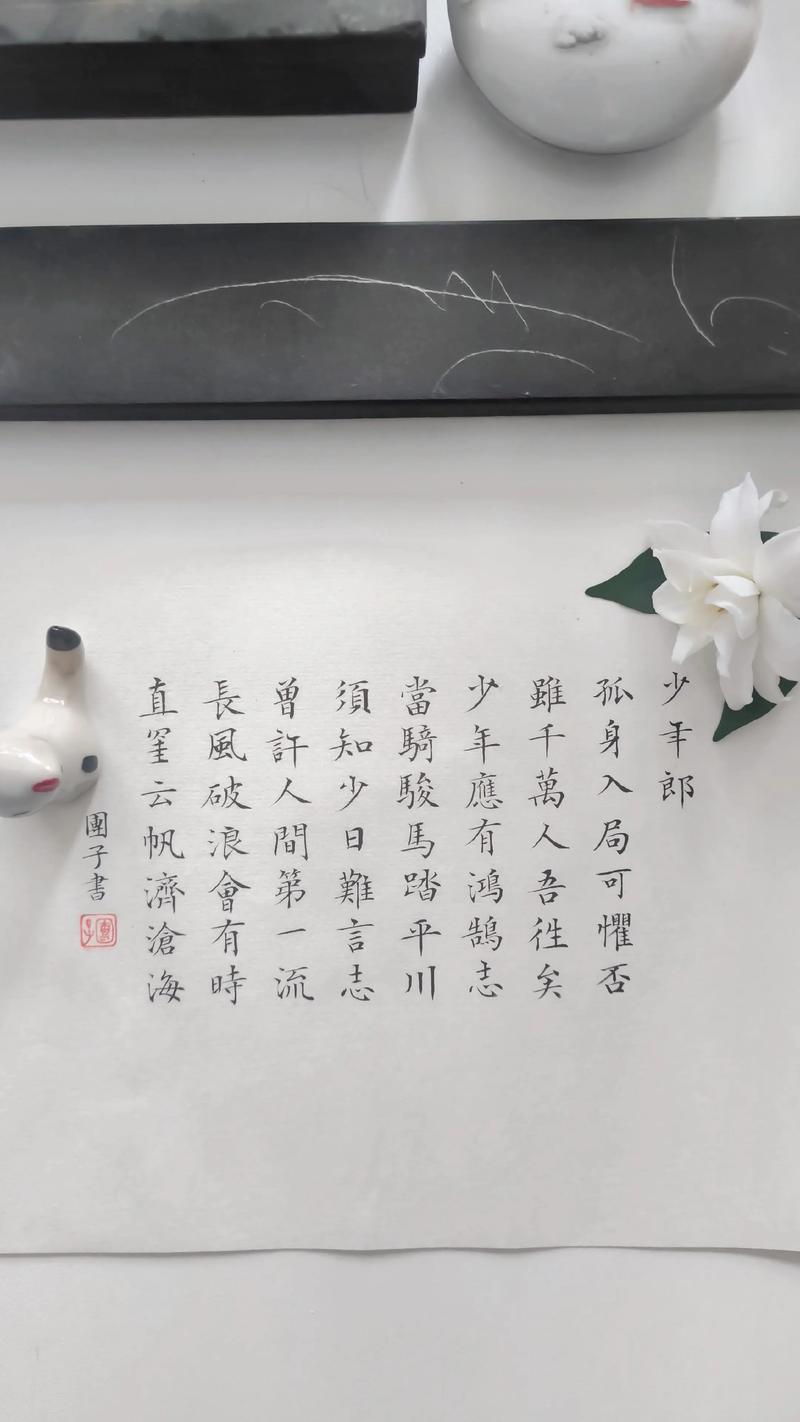 少年郎
孤身入局可懼否
雖千萬人吾往矣
少年應有鴻鵠志
當騎駿馬踏平川
須知少日難言志
曾許人間第一流
長風破浪會有時
直挂云帆濟滄海
團子書
團子